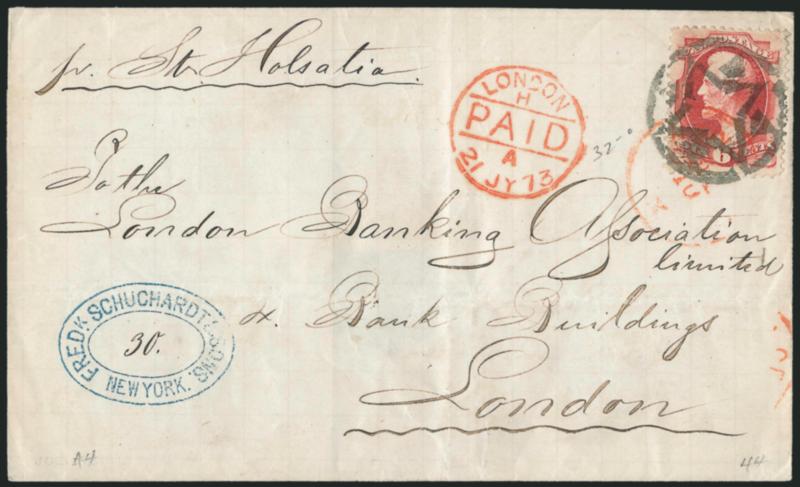 pr. Str. Holsatia.
LONDON
H
PAID
A
21 JY 73
32-
6
To the
London Banking Association
limited
&. Bank Buildings
London
FREDK SCHUCHARDT & SONS.
30.
NEW YORK.
A4
44